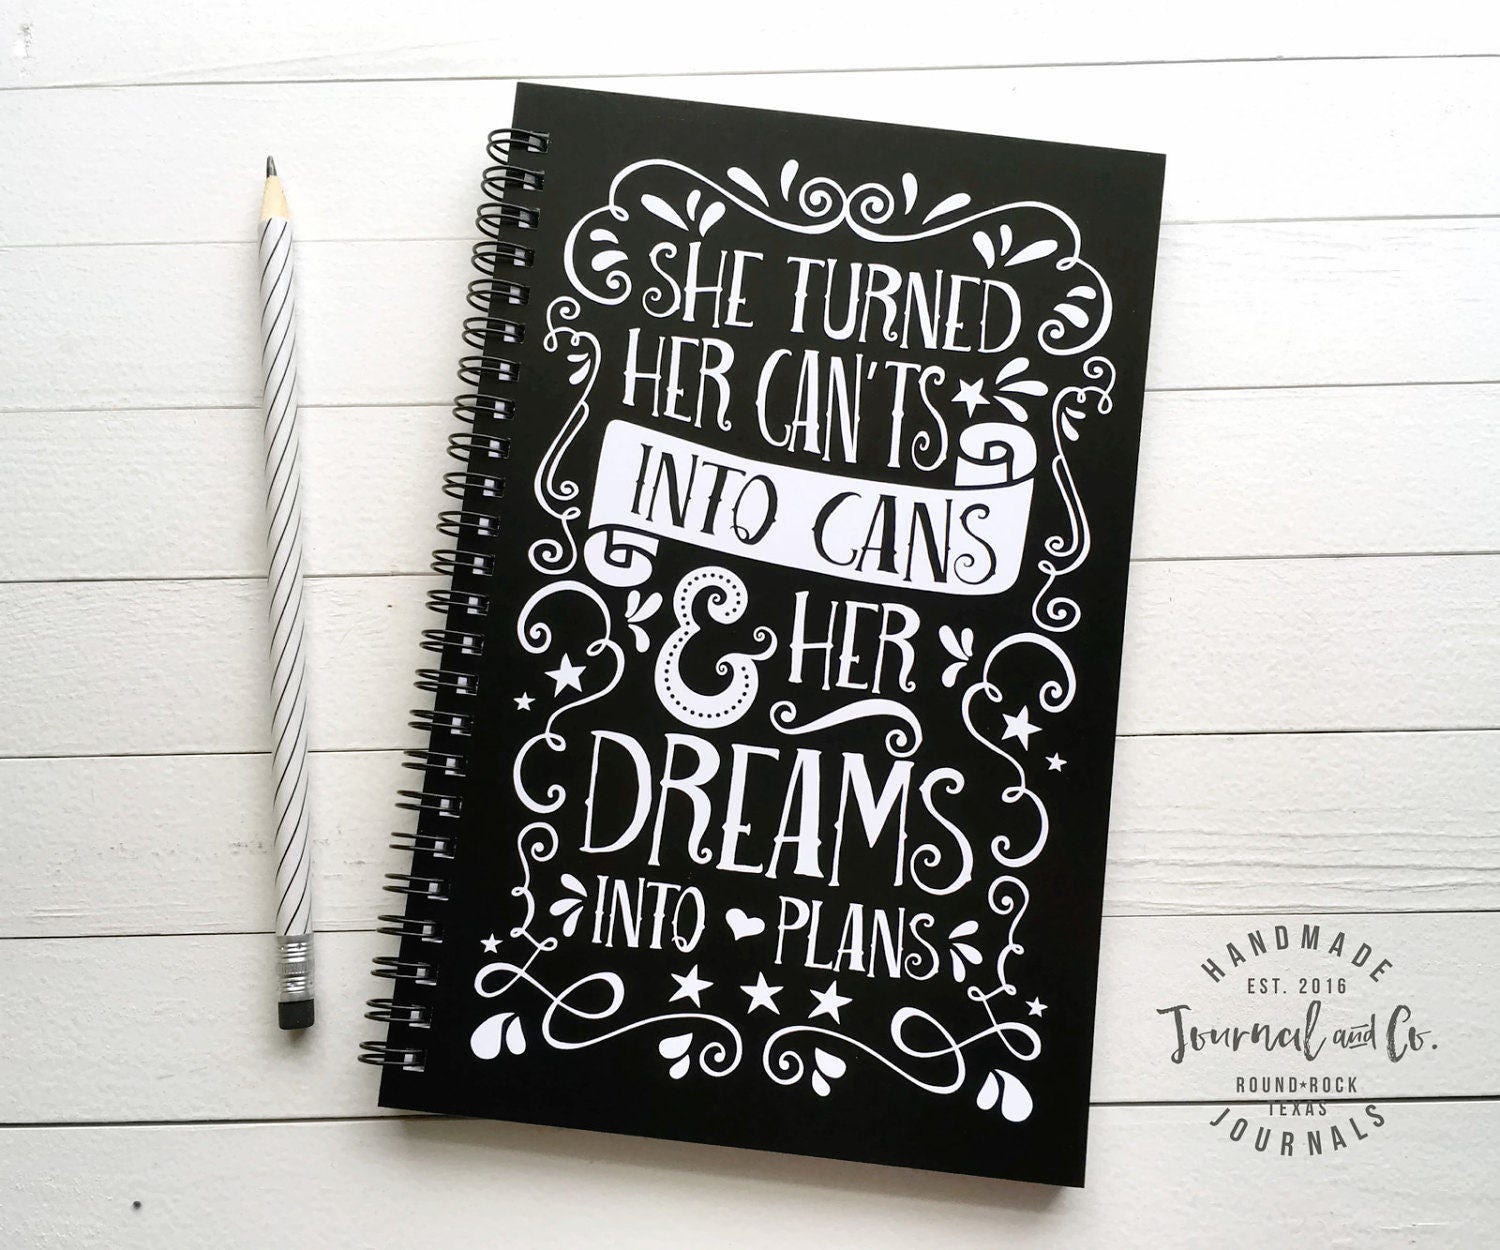 SHE TURNED
HER CAN'TS
INTO CANS
& HER
DREAMS
INTO PLANS
HANDMADE
EST. 2016
Journal and Co.
ROUND★ROCK
TEXAS
JOURNALS